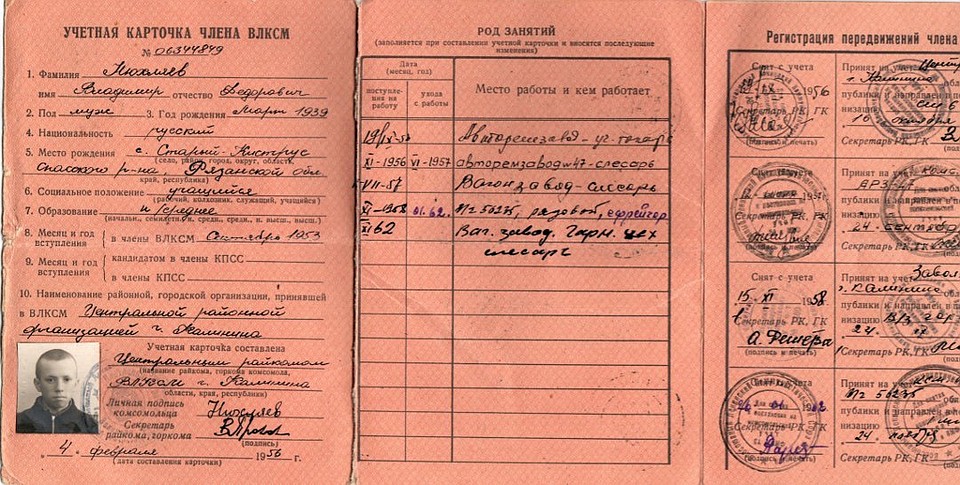 УЧЕТНАЯ КАРТОЧКА ЧЛЕНА ВЛКСМ
№ 06344849
1. Фамилия Нюхляев
имя Владимир отчество Федорович
2. Пол муж 3. Год рождения Март 1939
4. Национальность русский
5. Место рождения с. Старый-Киструс
(село, район, город, округ, область,
Спасского р-на, Рязанской обл.
край, республика)
6. Социальное положение учащийся
(рабочий, колхозник, служащий, учащийся)
7. Образование н/среднее
(начальн., семилетн., н. средн., средн., н. высш., высш.)
8. Месяц и год вступления в члены ВЛКСМ Сентябрь 1953
9. Месяц и год вступления кандидатом в члены КПСС
в члены КПСС
10. Наименование районной, городской организации, принявшей
в ВЛКСМ Центральной районной
организацией г. Калинина
Учетная карточка составлена
Центральным райкомом
(название райкома, горкома комсомола,
ВЛКСМ г. Калинина
области, края, республики)
Личная подпись комсомольца Нюхляев
Секретарь райкома, горкома
(подпись)
" 4 " февраля 1956 г.
(дата составления карточки)
РОД ЗАНЯТИЙ
(заполняется при составлении учетной карточки и вносятся последующие
изменения)
Дата
(месяц, год)
поступления на работу
ухода с работы
Место работы и кем работает
Авторемзавод
XI-1956 VI-1957 авторемзавод №7-слесарь
VII-57 Вагонзавод-слесарь
XI-1958 01.62. в/ч 50275, рядовой, ефрейтор
XI 62 Ваг. завод. Гарн. цех
слесарь
Регистрация передвижений члена
Снят с учета
1956
Секретарь РК, ГК
(подпись и печать)
Принят на учет Центр
г. Калинина
публики и направлен в
низацию
16 октября
Секретарь РК, ГК
Снят с учета
Секретарь РК, ГК
(подпись и печать)
Принят на учет
АРЗ
публики и направлен в
низацию
24 сентября
Секретарь РК, ГК
Снят с учета
15. XI 1958
Секретарь РК, ГК
(подпись и печать)
Принят на учет Завол
г. Калинин
публики и направлен в
низацию
24.
Секретарь РК, ГК
Снят с учета
26 01 1962
Секретарь РК, ГК
(подпись и печать)
Принят на учет
в/ч 50275
публики и направлен в
низацию
24 ноября
Секретарь РК, ГК